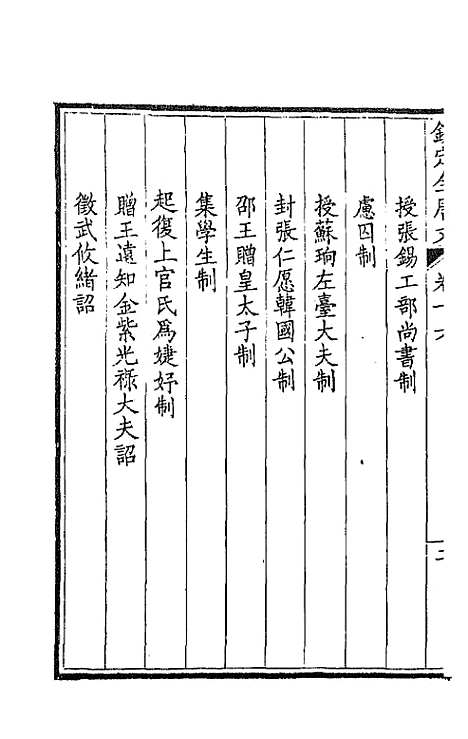 欽定全唐文 卷十六 二
授張錫工部尚書制
慮囚制
授蘇珦左臺大夫制
封張仁愿韓國公制
邵王贈皇太子制
集學生制
起復上官氏為婕妤制
贈王遠知金紫光祿大夫詔
徵武攸緒詔